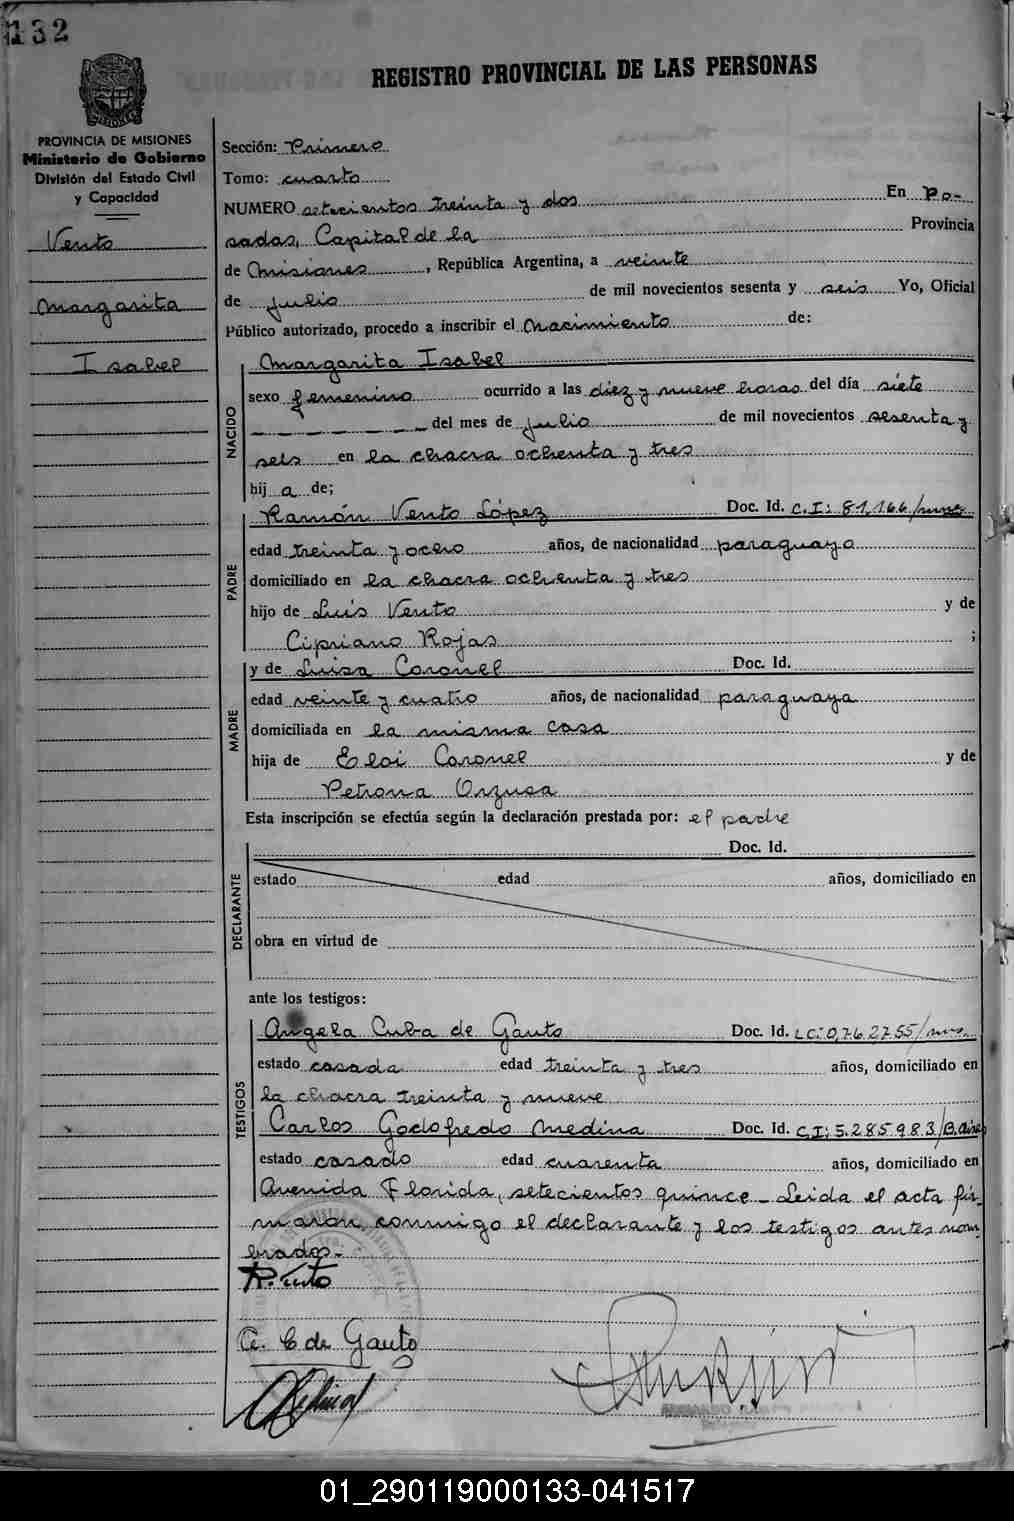 132
REGISTRO PROVINCIAL DE LAS PERSONAS
PROVINCIA DE MISIONES
Ministerio de Gobierno
División del Estado Civil
y Capacidad
Vento
Margarita
Isabel
Sección: Primero
Tomo: cuarto
NUMERO setecientos treinta y dos En Po-
sadas, Capital de la Provincia
de Misiones, República Argentina, a veinte
de julio de mil novecientos sesenta y seis Yo, Oficial
Público autorizado, procedo a inscribir el Nacimiento de:
NACIDO
Margarita Isabel
sexo femenino ocurrido a las diez y nueve horas del día siete
del mes de julio de mil novecientos sesenta y
seis en la chacra ochenta y tres
hij a de;
PADRE
Ramón Vento López Doc. Id. C.I: 81,166/mnes
edad treinta y ocho años, de nacionalidad paraguayo
domiciliado en la chacra ochenta y tres
hijo de Luis Vento y de
Cipriano Rojas ;
MADRE
y de Luisa Coronel Doc. Id.
edad veinte y cuatro años, de nacionalidad paraguaya
domiciliada en la misma casa
hija de Eloi Coronel y de
Petrona Orzusa
Esta inscripción se efectúa según la declaración prestada por: el padre
DECLARANTE
Doc. Id.
estado edad años, domiciliado en
obra en virtud de
ante los testigos:
TESTIGOS
Angela Cuba de Gauto Doc. Id. LC: 0,762755/mns.
estado casada edad treinta y tres años, domiciliado en
la chacra treinta y nueve
Carlos Godofredo Medina Doc. Id. C.I: 5.285983/B.aires
estado casado edad cuarenta años, domiciliado en
Avenida Florida, setecientos quince - Leida el acta fir-
maron conmigo el declarante y los testigos antes nom-
brados.-
R. Vento
A. C de Gauto
01_290119000133-041517